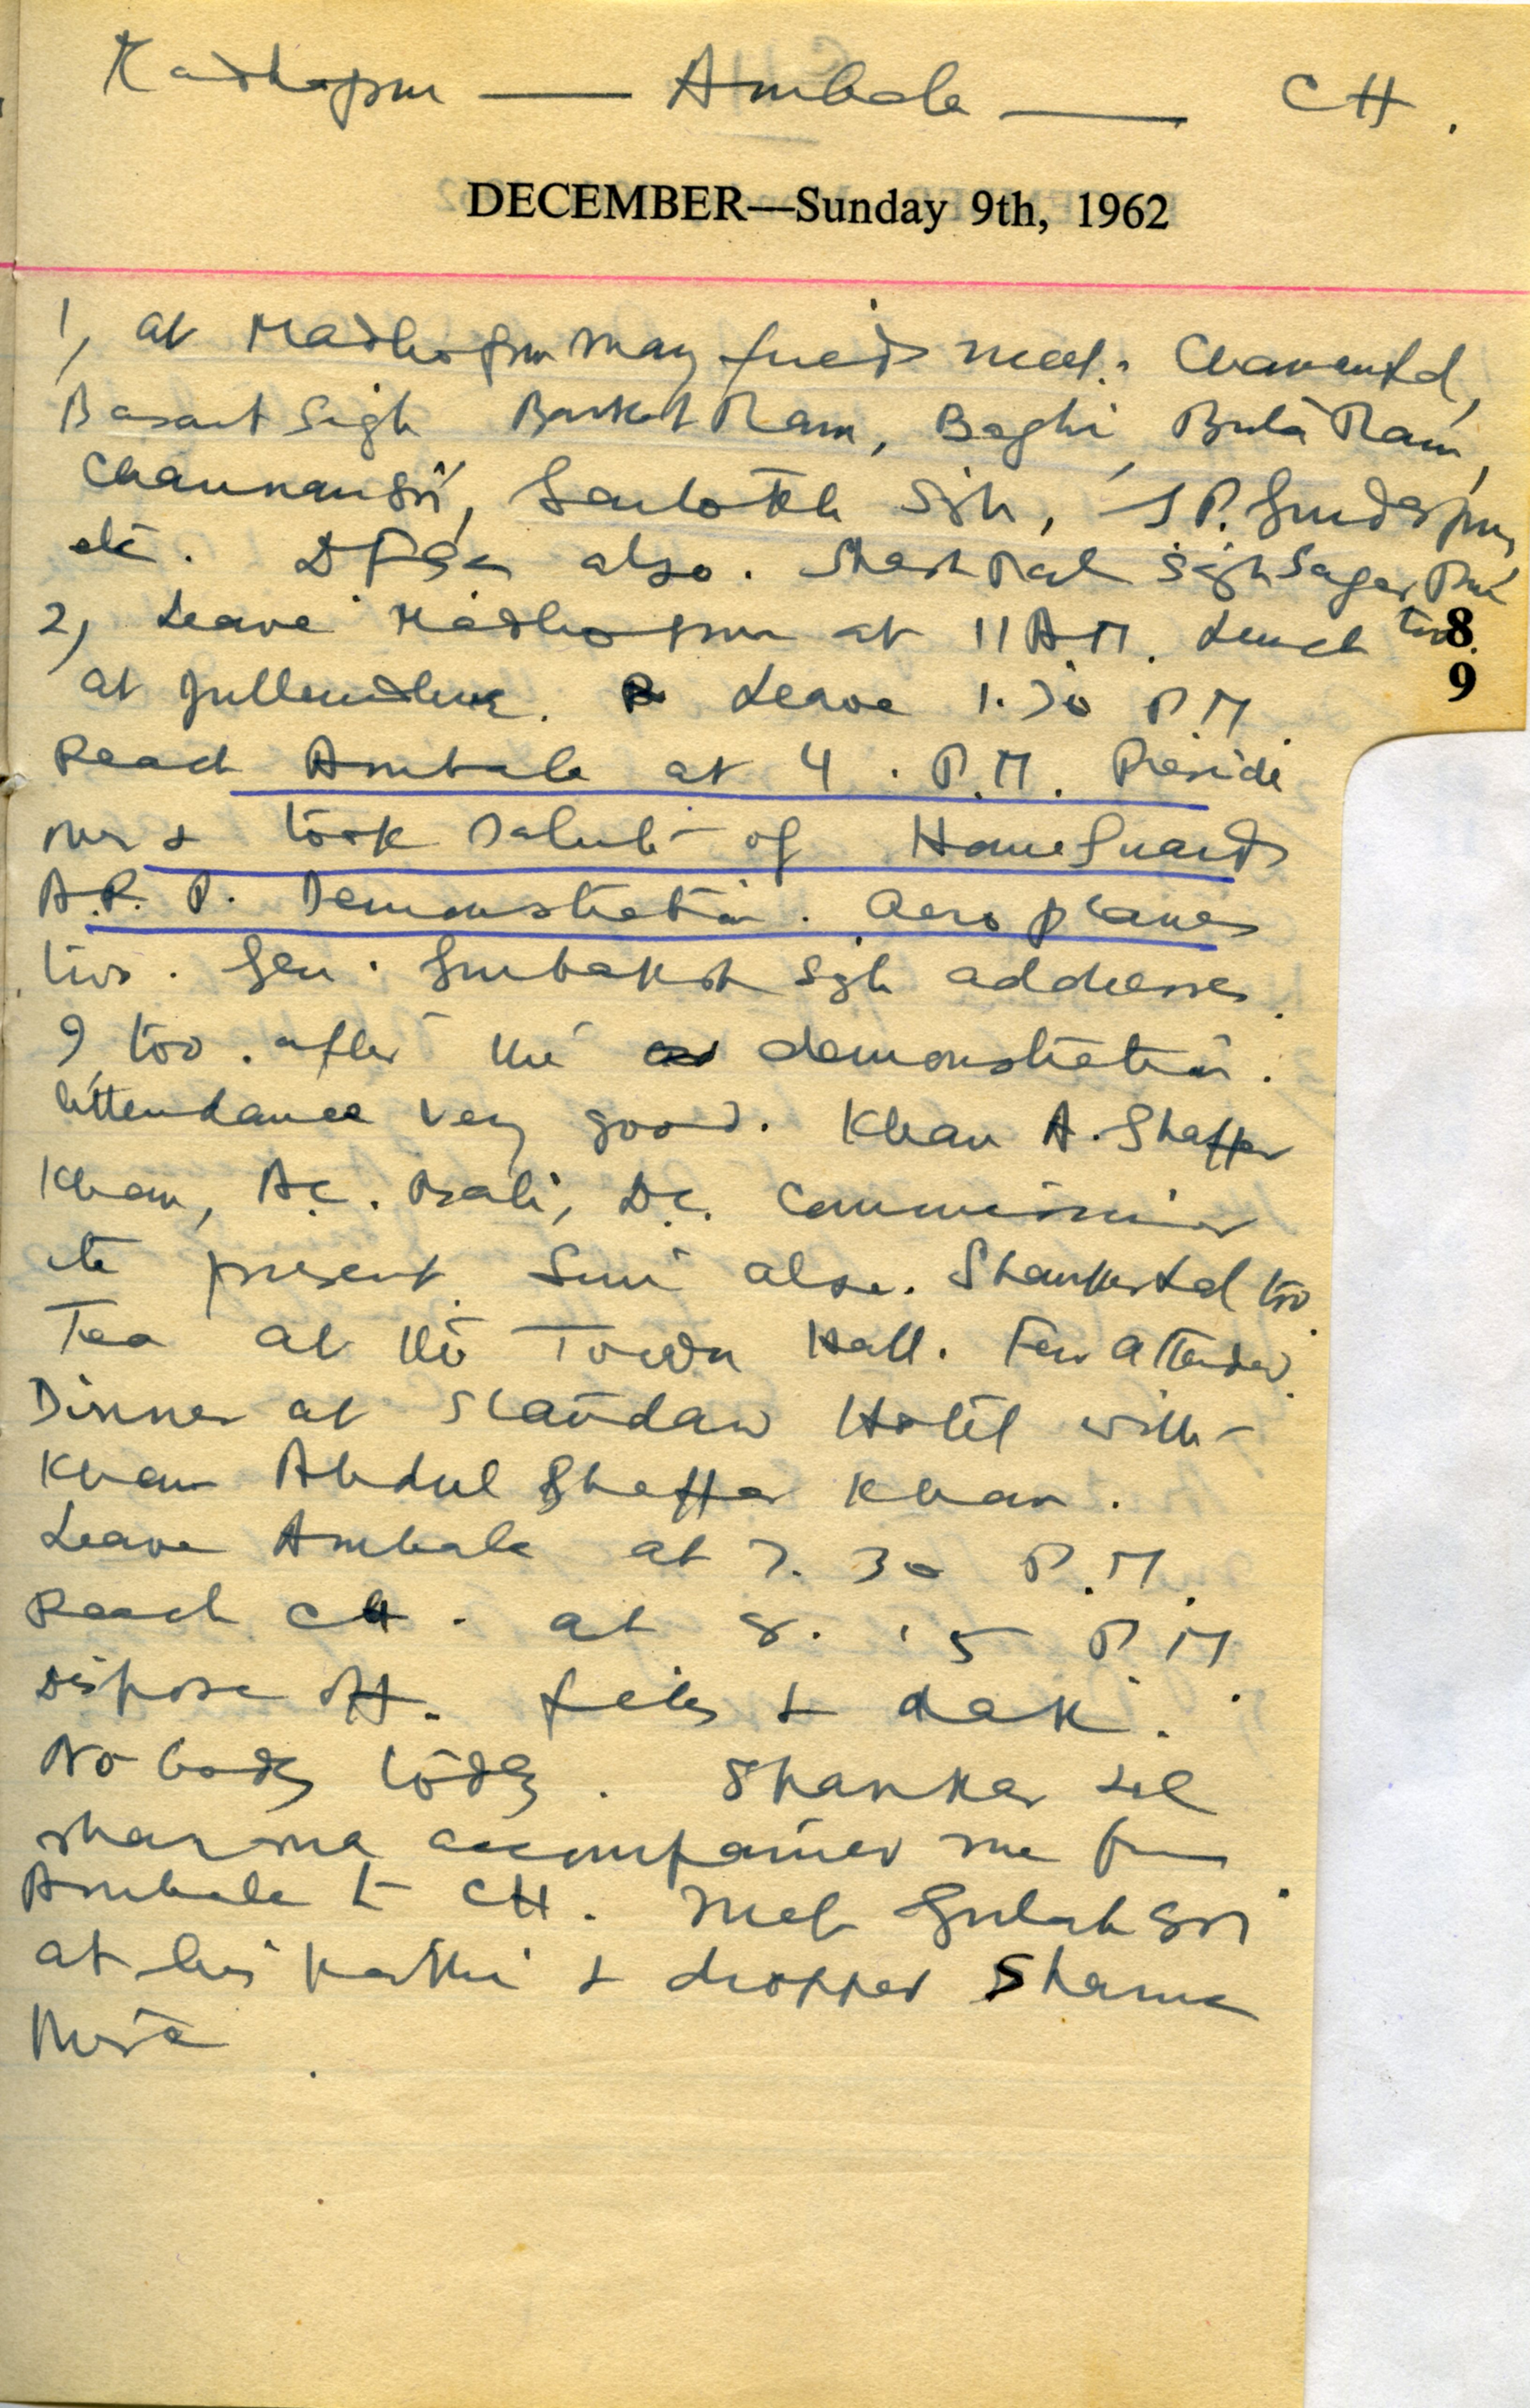 Madhopur — Ambala — CH.
DECEMBER—Sunday 9th, 1962
1, at Madhopur many friends meet. Chamanlal,
Basant Singh Barkat Ram, Baghi, Ram,
Channan, Santokh Singh, S.P. Gurdaspur,
etc. also. Pal Singh Sagar
2, Leave Madhopur at 11 A.M. Lunch too.
8
at Jullundur. Leave 1.30 P.M
9
Reach Ambala at 4. P.M. Preside
over & took Salute of Home Guards
A.R.P. Demonstration. Aeroplanes
two. Gen. Gurbaksh Singh addresses.
I too. after the demonstration.
Attendance very good. Khan A. Ghaffar
Khan, A.C. Bali, D.C. Commissioner
etc present. Suri also. Shankerlal too.
Tea at the Town Hall. Few attended.
Dinner at Hotel with
Khan Abdul Ghaffar Khan.
Leave Ambala at 7.30 P.M.
Reach CH. at 8.15 P.M.
Dispose off. files & dak.
No body today. Shanker Lal
Sharma accompanied me from
Ambala to CH. Met Gulab
at his Kothi & dropped Sharma
there.